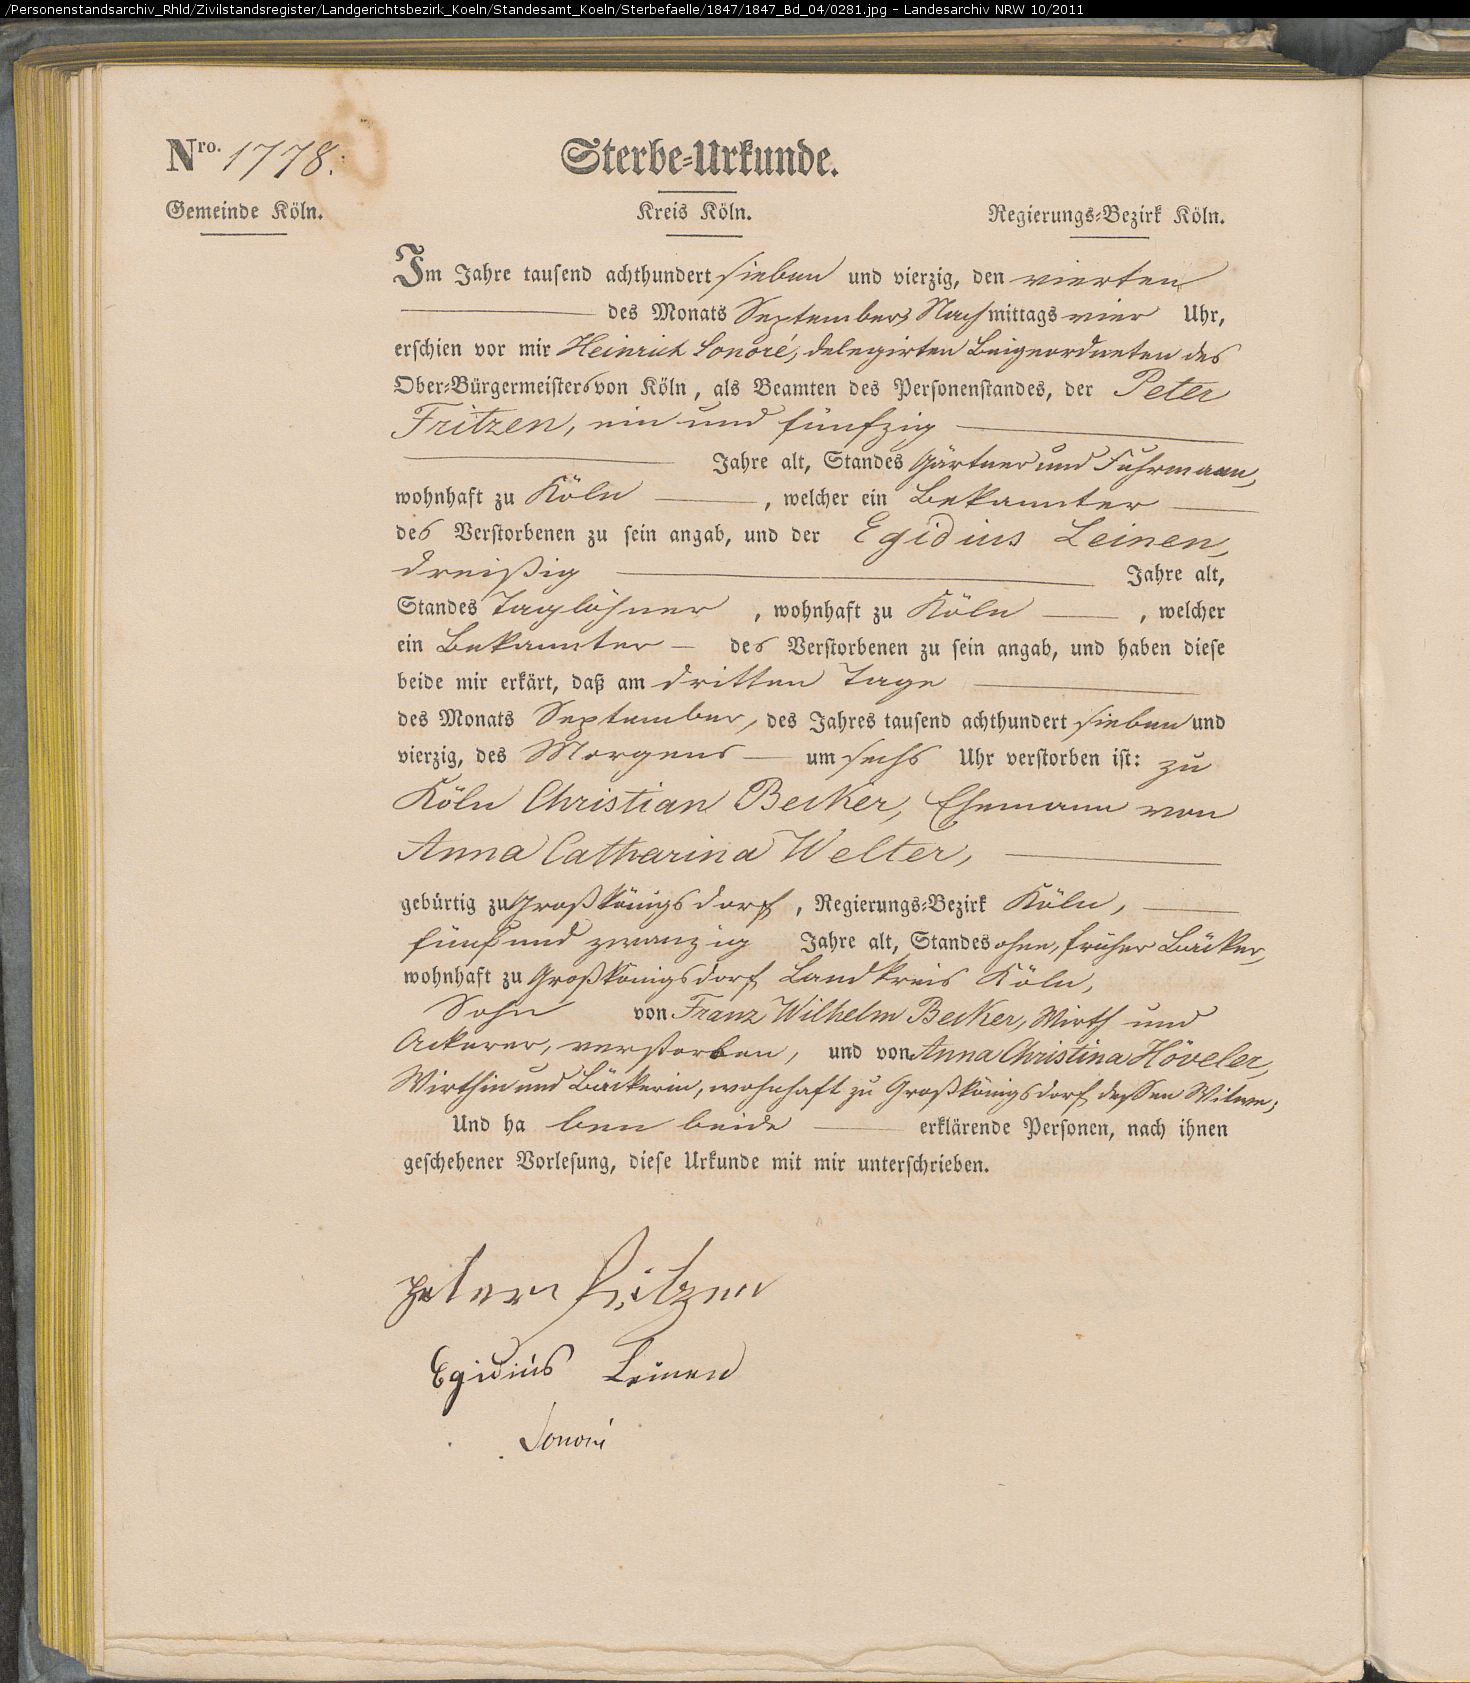 /Personenstandsarchiv_Rhld/Zivilstandsregister/Landgerichtsbezirk_Koeln/Standesamt_Koeln/Sterbefaelle/1847/1847_Bd_04/0281.jpg - Landesarchiv NRW 10/2011
Nro. 1778.
Sterbe-Urkunde.
Gemeinde Köln. Kreis Köln. Regierungs-Bezirk Köln.
Im Jahre tausend achthundert sieben und vierzig, den vierten
des Monats September, Nachmittags vier Uhr,
erschien vor mir Heinrich Lonoré, delegirten Beigeordneten des
Ober-Bürgermeisters von Köln, als Beamten des Personenstandes, der Peter
Fritzen, ein und fünfzig
Jahre alt, Standes Gärtner und Fuhrmann,
wohnhaft zu Köln, welcher ein Bekannter
des Verstorbenen zu sein angab, und der Egidius Leinen,
dreißig Jahre alt,
Standes Taglöhner, wohnhaft zu Köln, welcher
ein Bekannter des Verstorbenen zu sein angab, und haben diese
beide mir erkärt, daß am dritten Tage
des Monats September, des Jahres tausend achthundert sieben und
vierzig, des Morgens um sechs Uhr verstorben ist: zu
Köln Christian Becker, Ehemann von
Anna Catharina Welter,
gebürtig zu Großkönigsdorf, Regierungs-Bezirk Köln,
fünf und zwanzig Jahre alt, Standes ohne, früher Bäcker,
wohnhaft zu Großkönigsdorf Landkreis Köln,
Sohn von Franz Wilhelm Becker, Wirth und
Ackerer, verstorben, und von Anna Christina Höveler,
Wirthin und Bäckerin, wohnhaft zu Großkönigsdorf, dessen Witwe;
Und haben beide erklärende Personen, nach ihnen
geschehener Vorlesung, diese Urkunde mit mir unterschrieben.
peter fritzen
Egidius Leinen
Lonoré